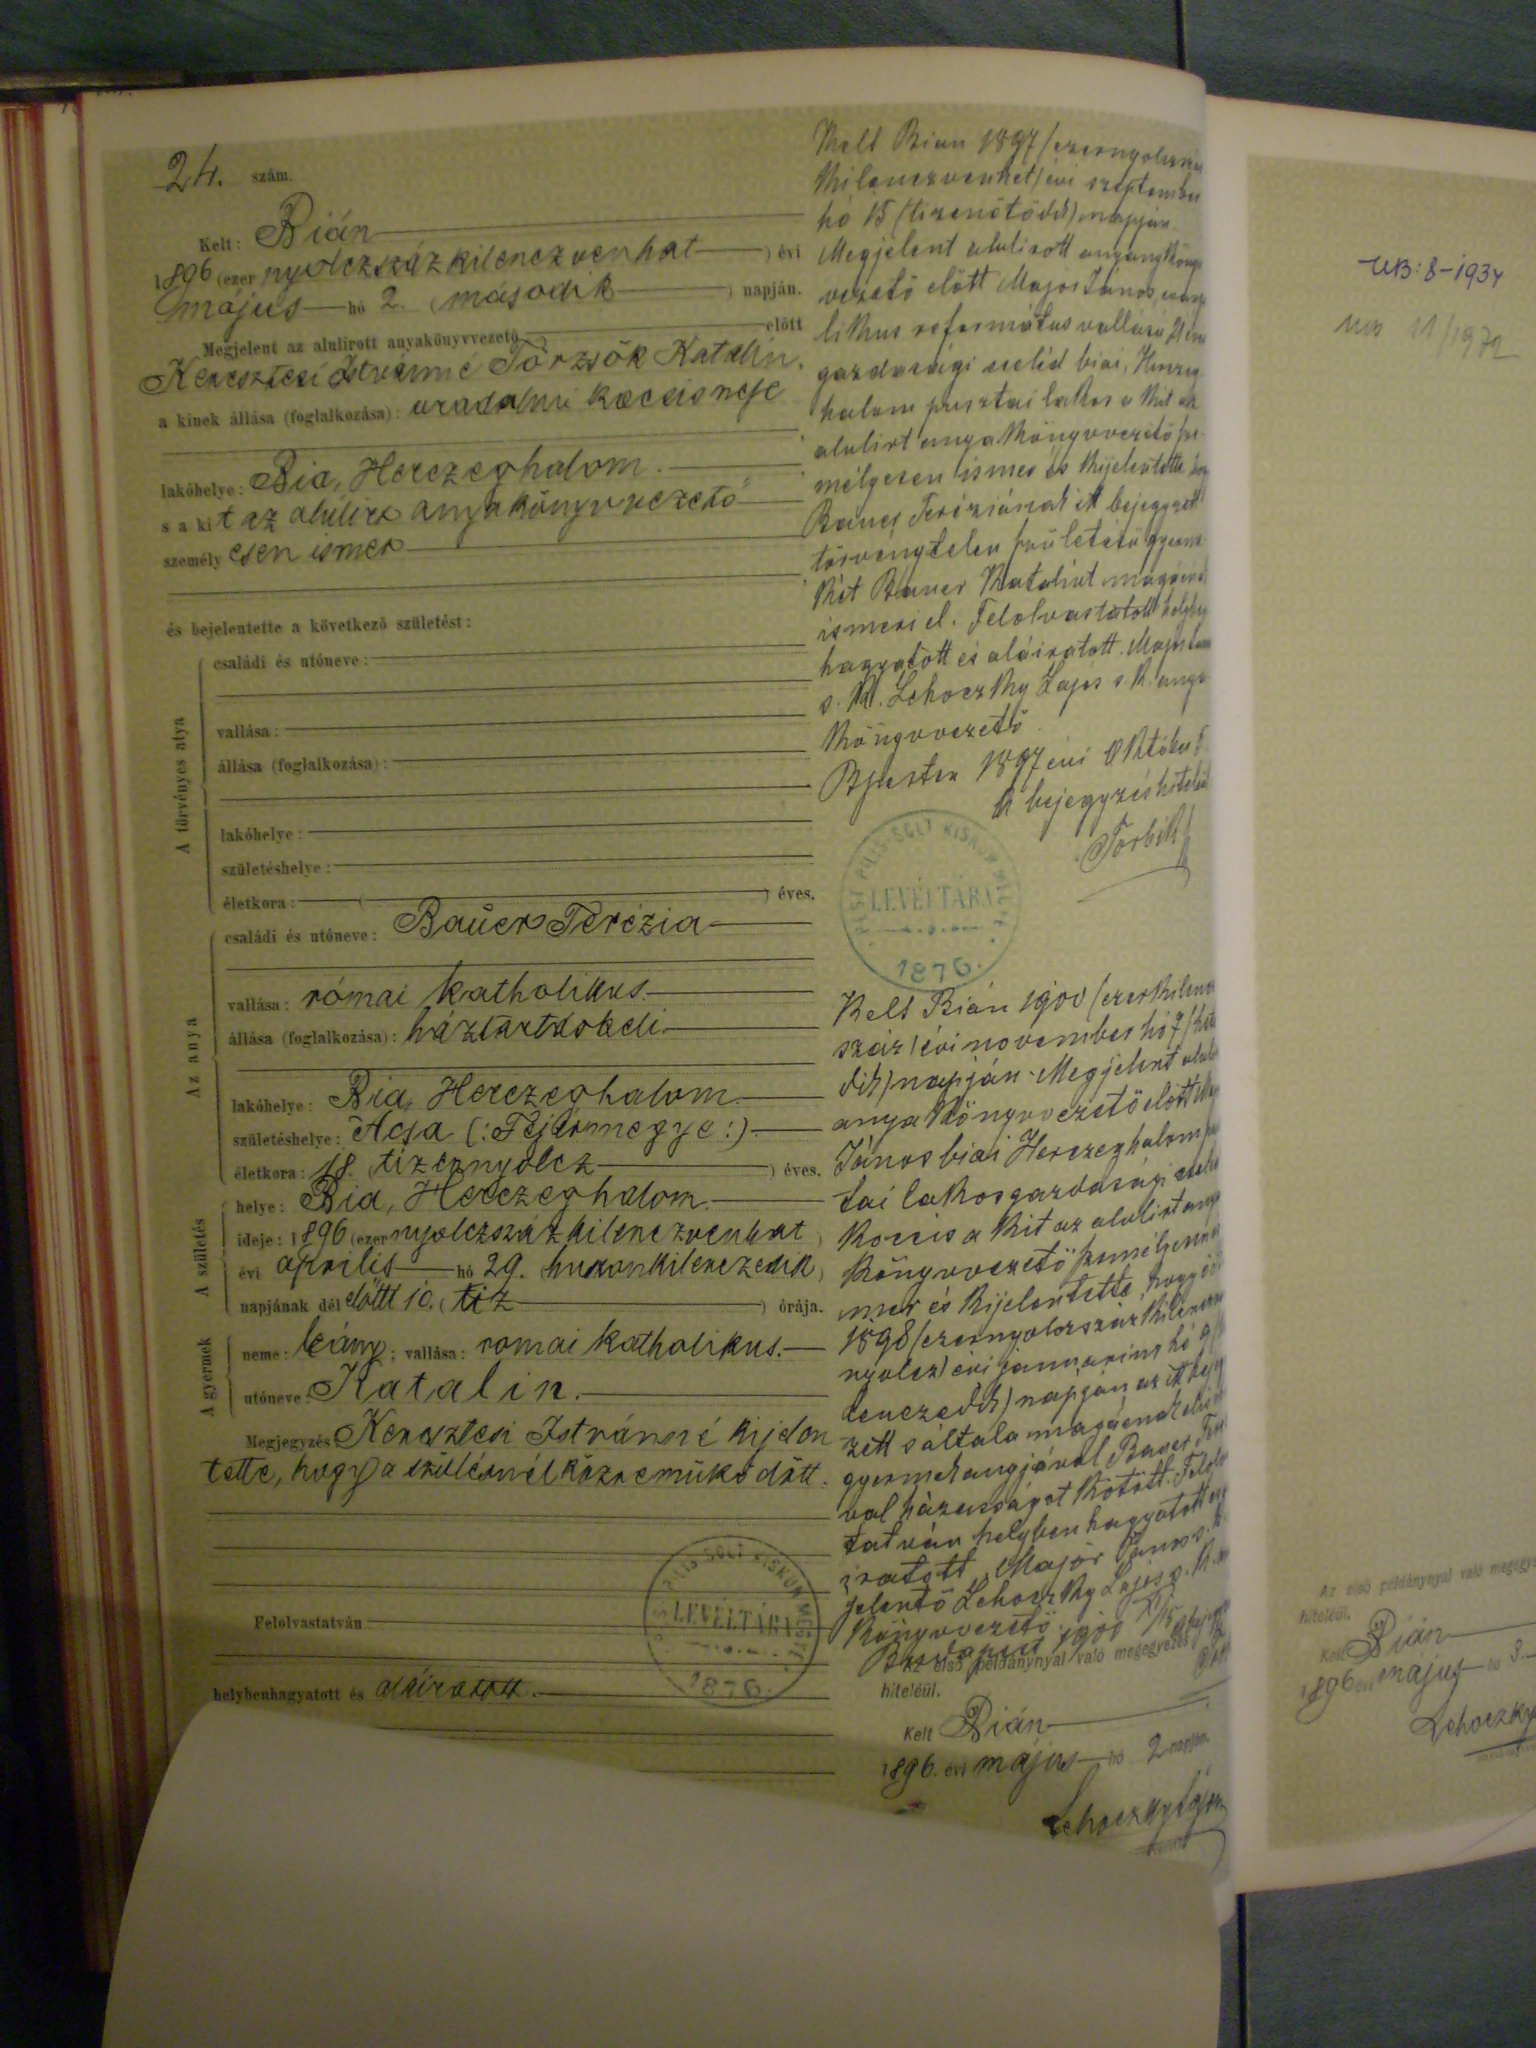 24. szám.
Kelt: Bián
1896 (ezer nyolczszáz kilenczvenhat ) évi
május hó 2. (második ) napján.
Megjelent az alulirott anyakönyvvezető előtt
Keresztesi Istvánné Törzsök Katalin,
a kinek állása (foglalkozása): uradalmi kocsis neje
lakóhelye: Bia, Herczeghalom.
s a kit az alulirt anyakönyvvezető
személyesen ismer
és bejelentette a következő születést:
A törvényes atya
családi és utóneve:
vallása:
állása (foglalkozása):
lakóhelye:
születéshelye:
életkora: ( ) éves.
Az anya
családi és utóneve: Bauer Terézia
vallása: római katholikus.
állása (foglalkozása): háztartásbeli.
lakóhelye: Bia, Herczeghalom.
születéshelye: Acsa (: Fejérmegye :)
életkora: 18. (tizennyolcz ) éves.
A születés
helye: Bia, Herczeghalom.
ideje: 1896 (ezer nyolczszáz kilenczvenhat )
évi április hó 29. (huszonkilenczedik)
napjának dél előtt 10. (tíz ) órája.
A gyermek
neme: leány; vallása: romai katholikus.
utóneve: Katalin.
Megjegyzés Keresztesi Istvánné kijelen
tette, hogy a szülésnél közremüködött.
Felolvastatván
helybenhagyatott és aláiratott.
Kelt Bian 1897 (ezernyolczszáz
kilenczvenhet) évi szeptember
hó 15 (tizenötödik) napján.
Megjelent alulirott anyakönyv
vezető előtt Major János, evan
likus református vallású
gazdasági cseléd biai, Herczeg
halom pusztai lakos a kit az
alulirt anyakönyvvezető sze
mélyesen ismer és kijelentette hogy
Bauer Teréziának itt bejegyzett
törvénytelen születésü gyerme
két Bauer Katalint magáénak
ismeri el. Felolvastatott helyben
hagyatott és aláiratott. Major János
s. k. Lehoczky Lajos s. k. anya
könyvvezető
Bpesten 1897 évi Október
A bejegyzés hiteléül
PEST-PILIS-SOLT KISKUN MEGYE
LEVÉLTÁRA
1876.
Kelt Bián 1900 (ezerkilencz
száz) évi november hó 7 (hete
dik) napján. Megjelent alul
anyakönyvvezető előtt Major
János biai Herczeghalom pusz
tai lakos gazdasági cseléd
kocsis a kit az alulirt anya
könyvvezető személyesen is
mer és kijelentette, hogy ő
1898 (ezernyolczszáz kilenczven
nyolcz) évi januárius hó 9 (ki
lenczedik) napján az itt bejegy
zett s általa magáénak elismert
gyermek anyjával Bauer Teré
val házasságot kötött. Felolvas
tatván helyben hagyatott és alá
iratott. Major János s. k.
jelentő Lehoczky Lajos s. k. any
könyvvezető.
Budapest 1900
Az első példánynyal való megegyezés
hiteléül.
Kelt Bián
1896. évi május hó 2 napján.
Lehoczky Lajos
PEST-PILIS-SOLT KISKUN MEGYE
LEVÉLTÁRA
1876.
UB: 8-1934
11/1972
Az első példánynyal való megegyezés
hiteléül.
Kelt Bián
1896 évi május hó 3.
Lehoczky